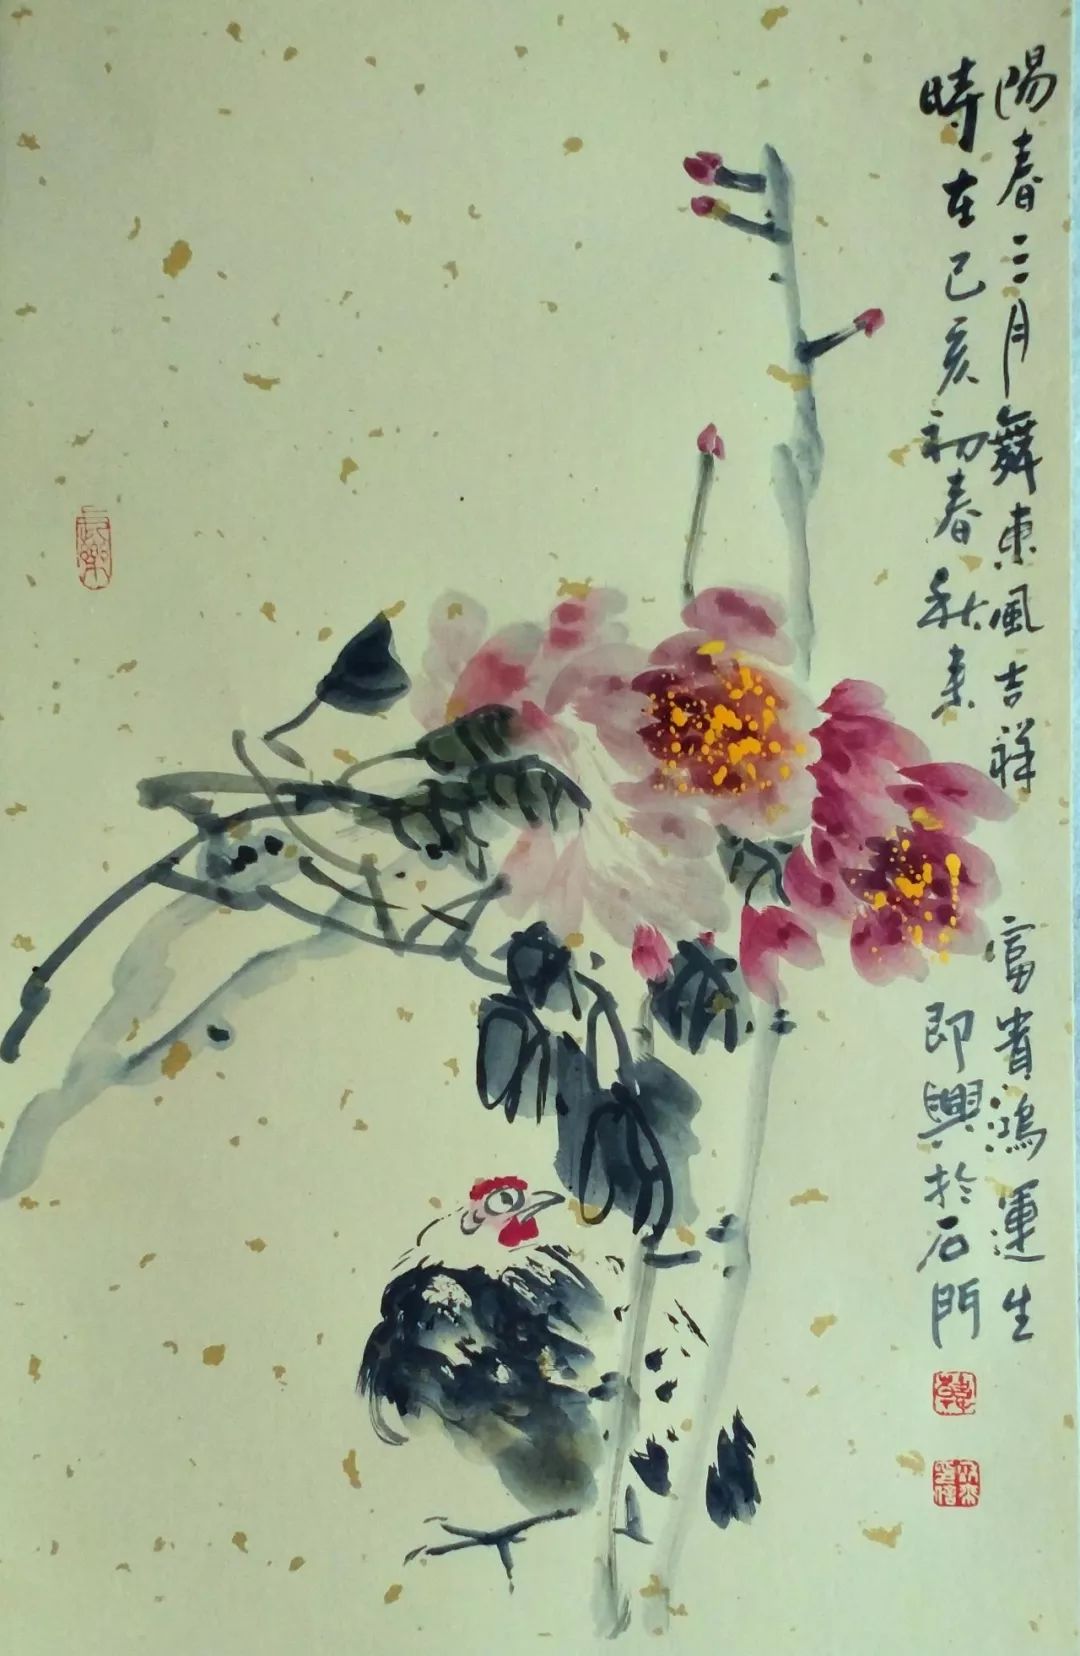 陽春三月舞東風吉祥富貴鴻運生
時在己亥初春秋來即興於石門
韓